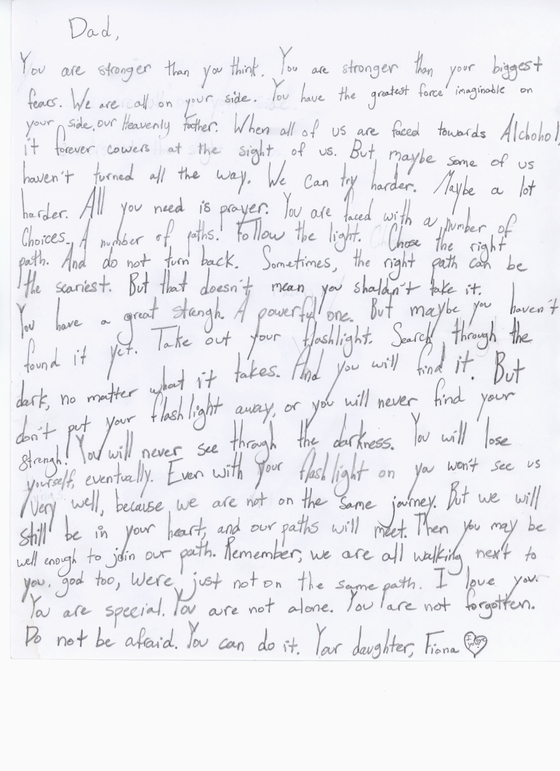 Dad,
You are stronger than you think. You are stronger than your biggest
fears. We are all on your side. You have the greatest force imaginable on
your side, our Heavenly Father. When all of us are faced towards Alchohol,
it forever cowers at the sight of us. But maybe some of us
haven't turned all the way. We can try harder. Maybe a lot
harder. All you need is prayer. You are faced with a number of
choices. A number of paths. Follow the light. Chose the right
path. And do not turn back. Sometimes, the right path can be
the scariest. But that doesn't mean you shaldn't take it.
You have a great strengh. A powerful one. But maybe you haven't
found it yet. Take out your flashlight. Search through the
dark, no matter what it takes. And you will find it. But
don't put your flashlight away, or you will never find your
strengh. You will never see through the darkness. You will lose
yourself, eventually. Even with your flashlight on you won't see us
very well, because we are not on the same journey. But we will
still be in your heart, and our paths will meet. Then you may be
well enough to join our path. Remember, we are all walking next to
you. god too, Were just not on the same path. I love you.
You are special. You are not alone. You are not forgotten.
Do not be afraid. You can do it. Your daughter, Fiona